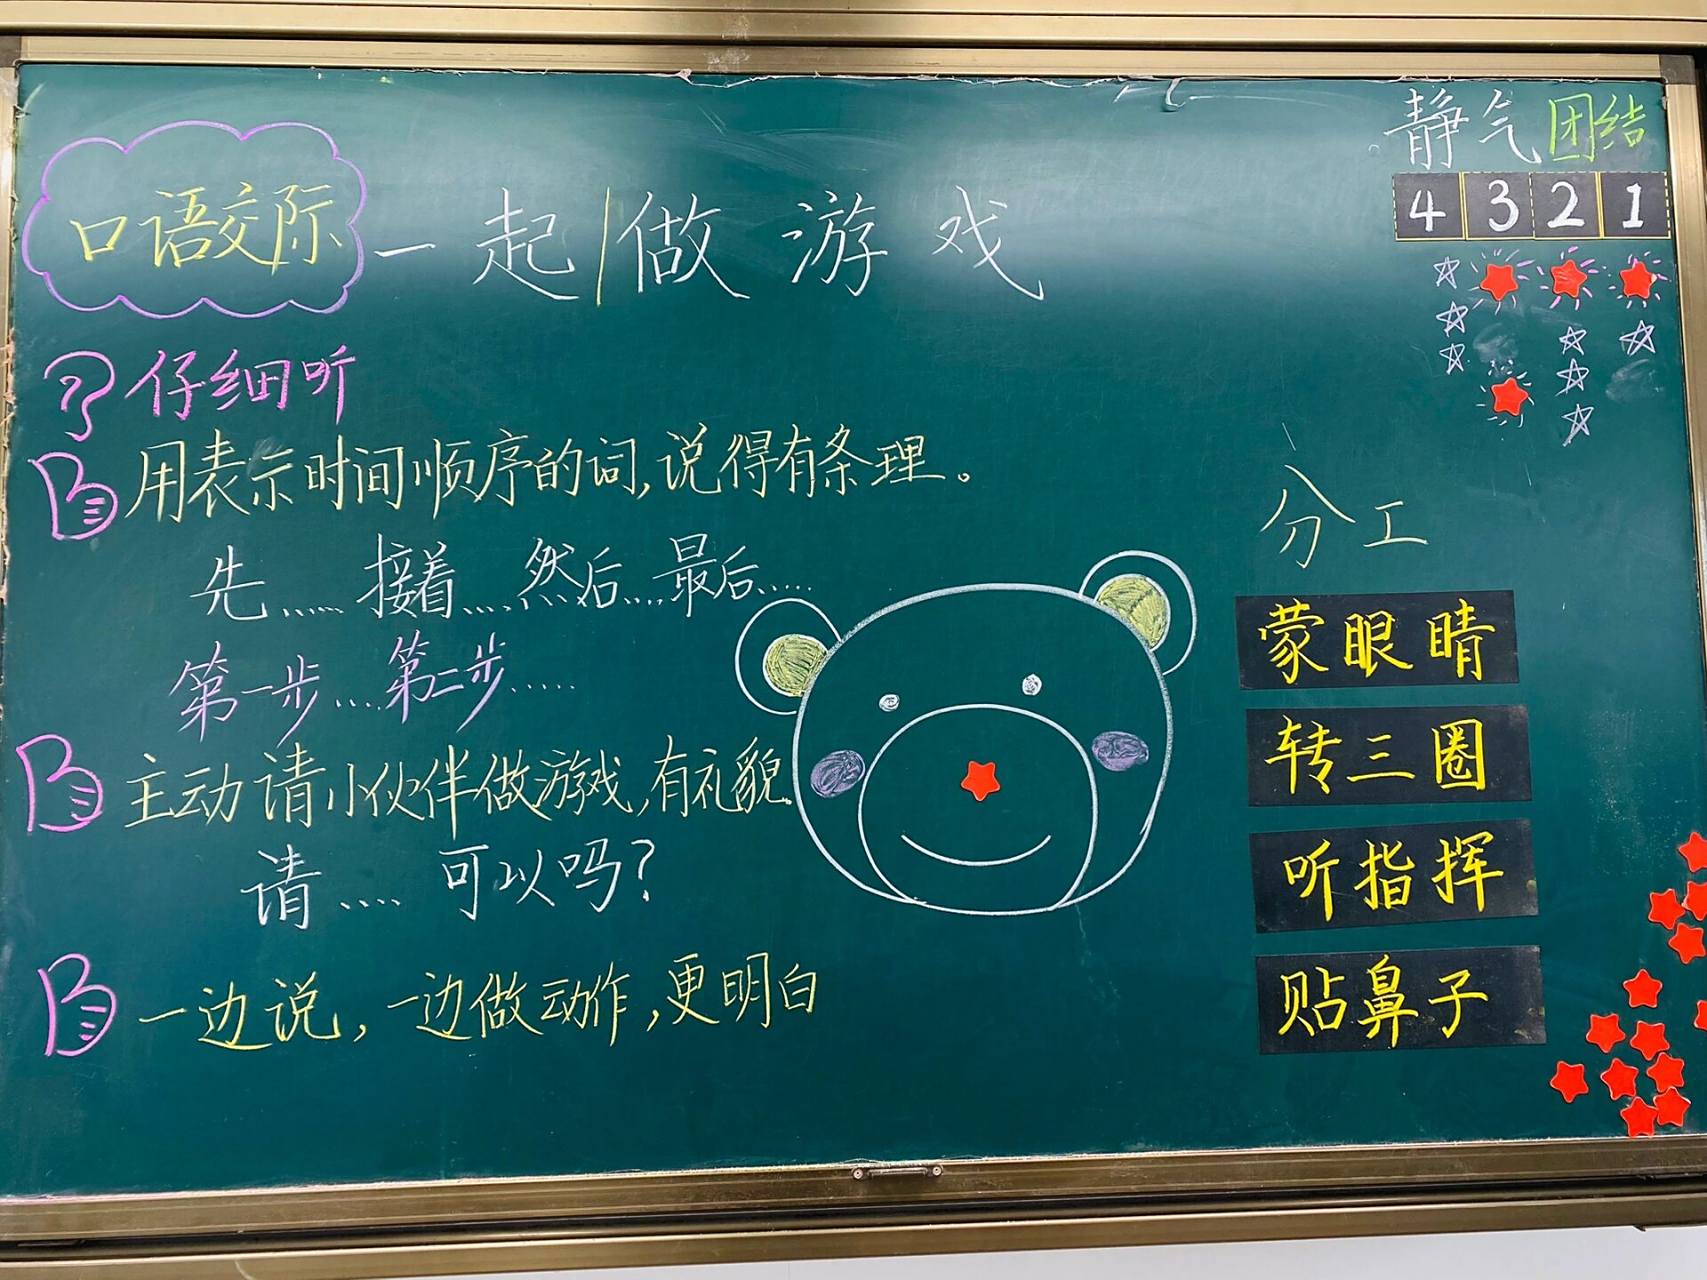 口语交际 一起/做游戏
仔细听
用表示时间顺序的词,说得有条理。
先……接着……然后……最后……
第一步…第二步……
主动请小伙伴做游戏,有礼貌
请…… 可以吗?
一边说,一边做动作,更明白
静气团结
4 3 2 1
分工
蒙眼睛
转三圈
听指挥
贴鼻子